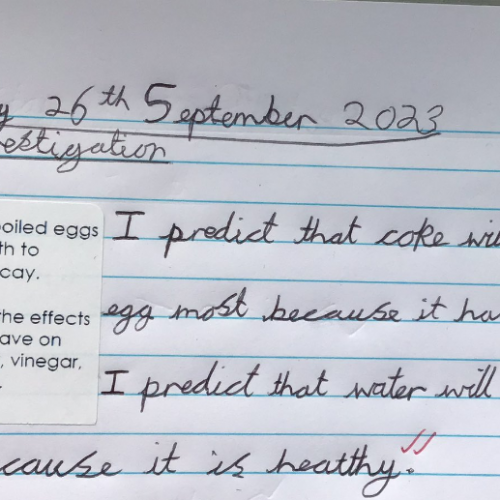 26th September 2023
estigation
oiled eggs
th to
cay.
the effects
ave on
, vinegar,
I predict that coke wil
egg most because it ha
I predict that water will
cause it is healthy.